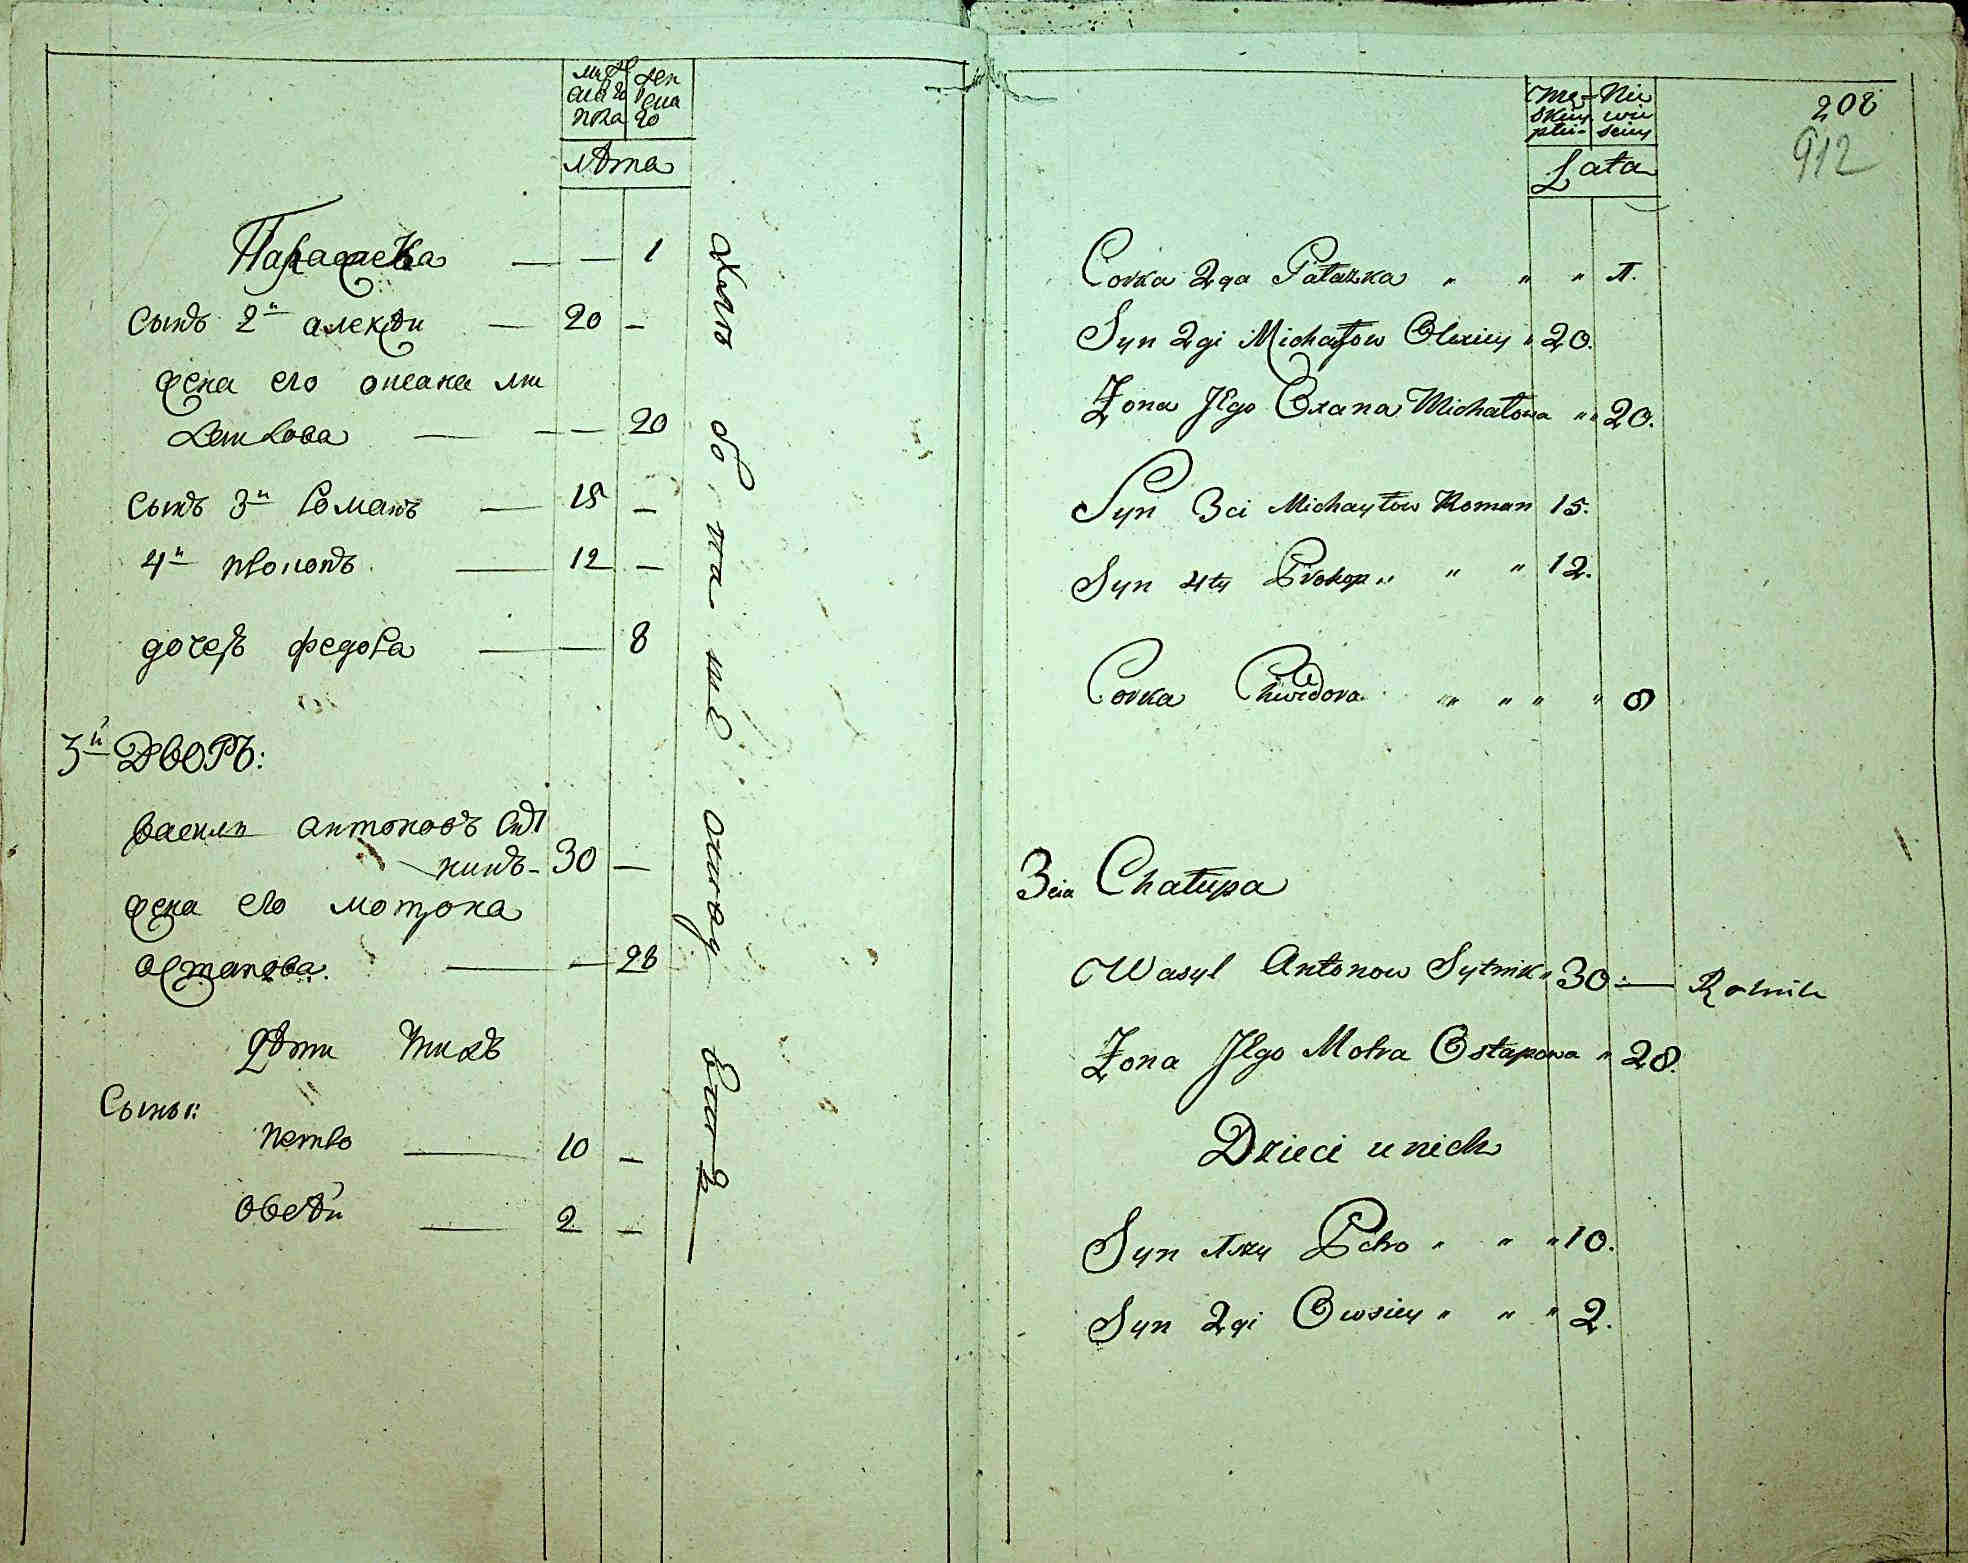 мужеска пола
женска го
лѣта
Параске​ва — — 1
сынъ 2й алексѣи — 20 —
жена его оксана ми
хаилова — — — 20
сынъ 3й Романъ — 15 —
4й прокопъ — 12 —
дочеръ федора — — 8
3й ДВОРЪ:
василь антоновъ Сит
никъ - 30 —
жена его мотрона
остапова. — — 28
Дѣти ихъ
Сыны:
петро — 10 —
овсѣй — 2 —
хлѣбо пашецъ
208
912
męskiey płci
Niewiesciey
Lata
Corka 2ga Parazka " " " 1.
Syn 2gi Michayłow Olexiey " 20.
Zona Jego Oxana Michałowa " " 20.
Syn 3ci Michayłow Roman 15.
Syn 4ty Prokop " " " 12.
Corka Chwedora " " " " 8
3cia Chałupa
Wasyl Antonow Sytnik " 30 — Rolnik
Zona Jego Motra Ostapowa " 28.
Dzieci u nich
Syn 1szy Petro " " " 10.
Syn 2gi Owsiey " " " 2.